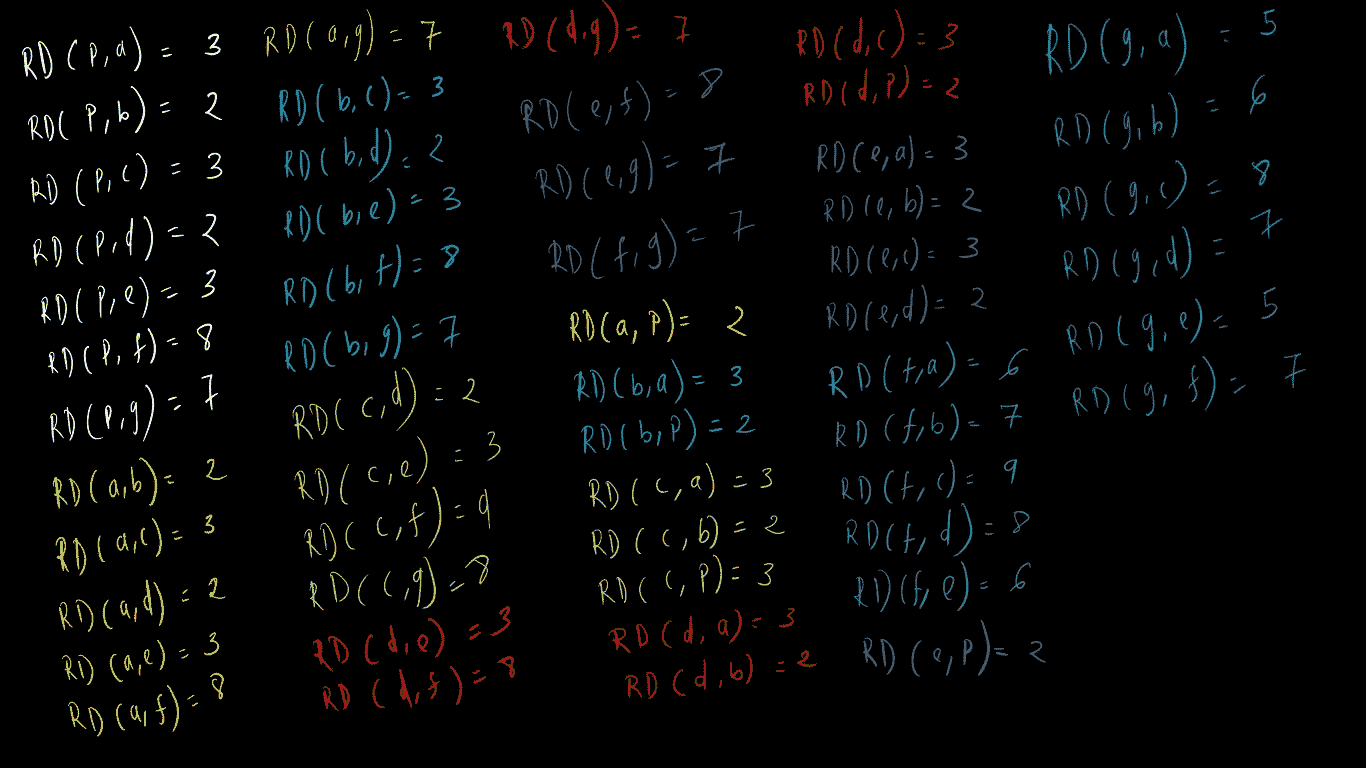 RD(p,a) = 3
RD(p,b) = 2
RD(p,c) = 3
RD(p,d) = 2
RD(p,e) = 3
RD(p,f) = 8
RD(p,g) = 7
RD(a,b) = 2
RD(a,c) = 3
RD(a,d) = 2
RD(a,e) = 3
RD(a,f) = 8
RD(a,g) = 7
RD(b,c) = 3
RD(b,d) = 2
RD(b,e) = 3
RD(b,f) = 8
RD(b,g) = 7
RD(c,d) = 2
RD(c,e) = 3
RD(c,f) = 9
RD(c,g) = 8
RD(d,e) = 3
RD(d,f) = 8
RD(d,g) = 7
RD(e,f) = 8
RD(e,g) = 7
RD(f,g) = 7
RD(a,p) = 2
RD(b,a) = 3
RD(b,p) = 2
RD(c,a) = 3
RD(c,b) = 2
RD(c,p) = 3
RD(d,a) = 3
RD(d,b) = 2
RD(d,c) = 3
RD(d,p) = 2
RD(e,a) = 3
RD(e,b) = 2
RD(e,c) = 3
RD(e,d) = 2
RD(f,a) = 6
RD(f,b) = 7
RD(f,c) = 9
RD(f,d) = 8
RD(f,e) = 6
RD(e,p) = 2
RD(g,a) = 5
RD(g,b) = 6
RD(g,c) = 8
RD(g,d) = 7
RD(g,e) = 5
RD(g,f) = 7